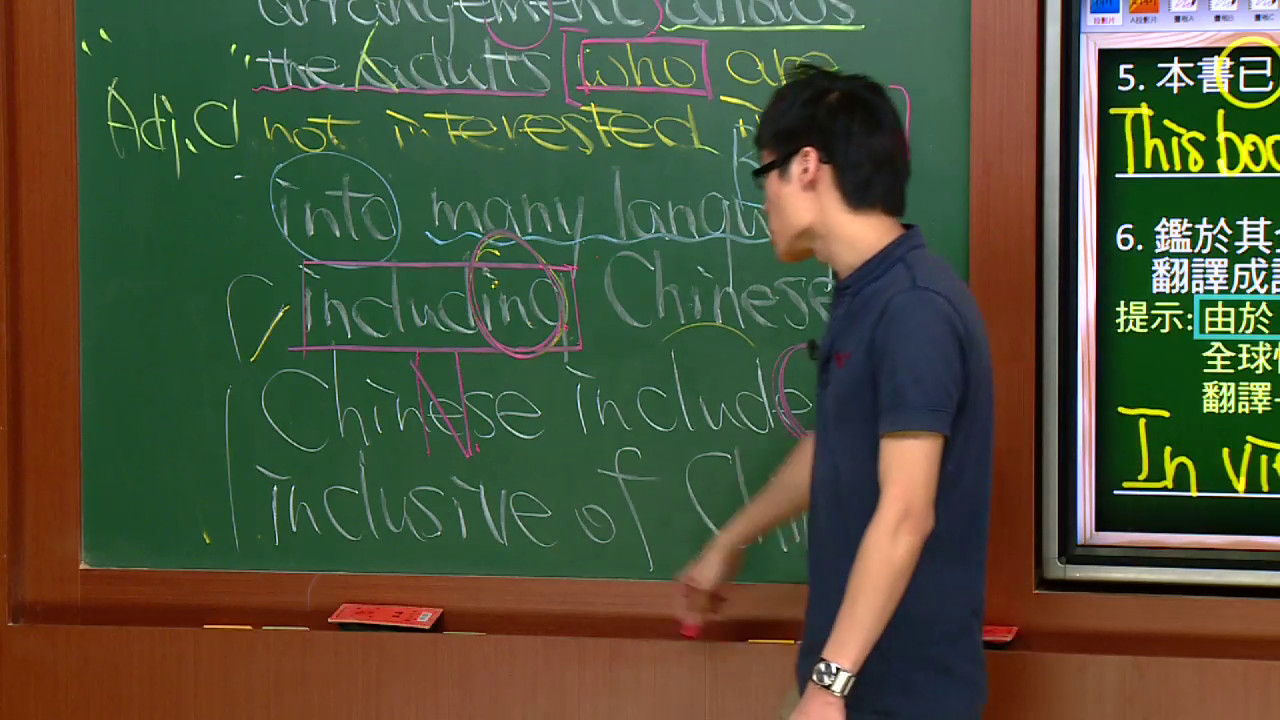 arrangement allows
the adults who are
Adj.cl not interested
into many langu
including Chinese
Chinese include
inclusive of Chi
5. 本書已
This boo
6. 鑑於其
翻譯成
提示: 由於
全球
翻譯
In vi